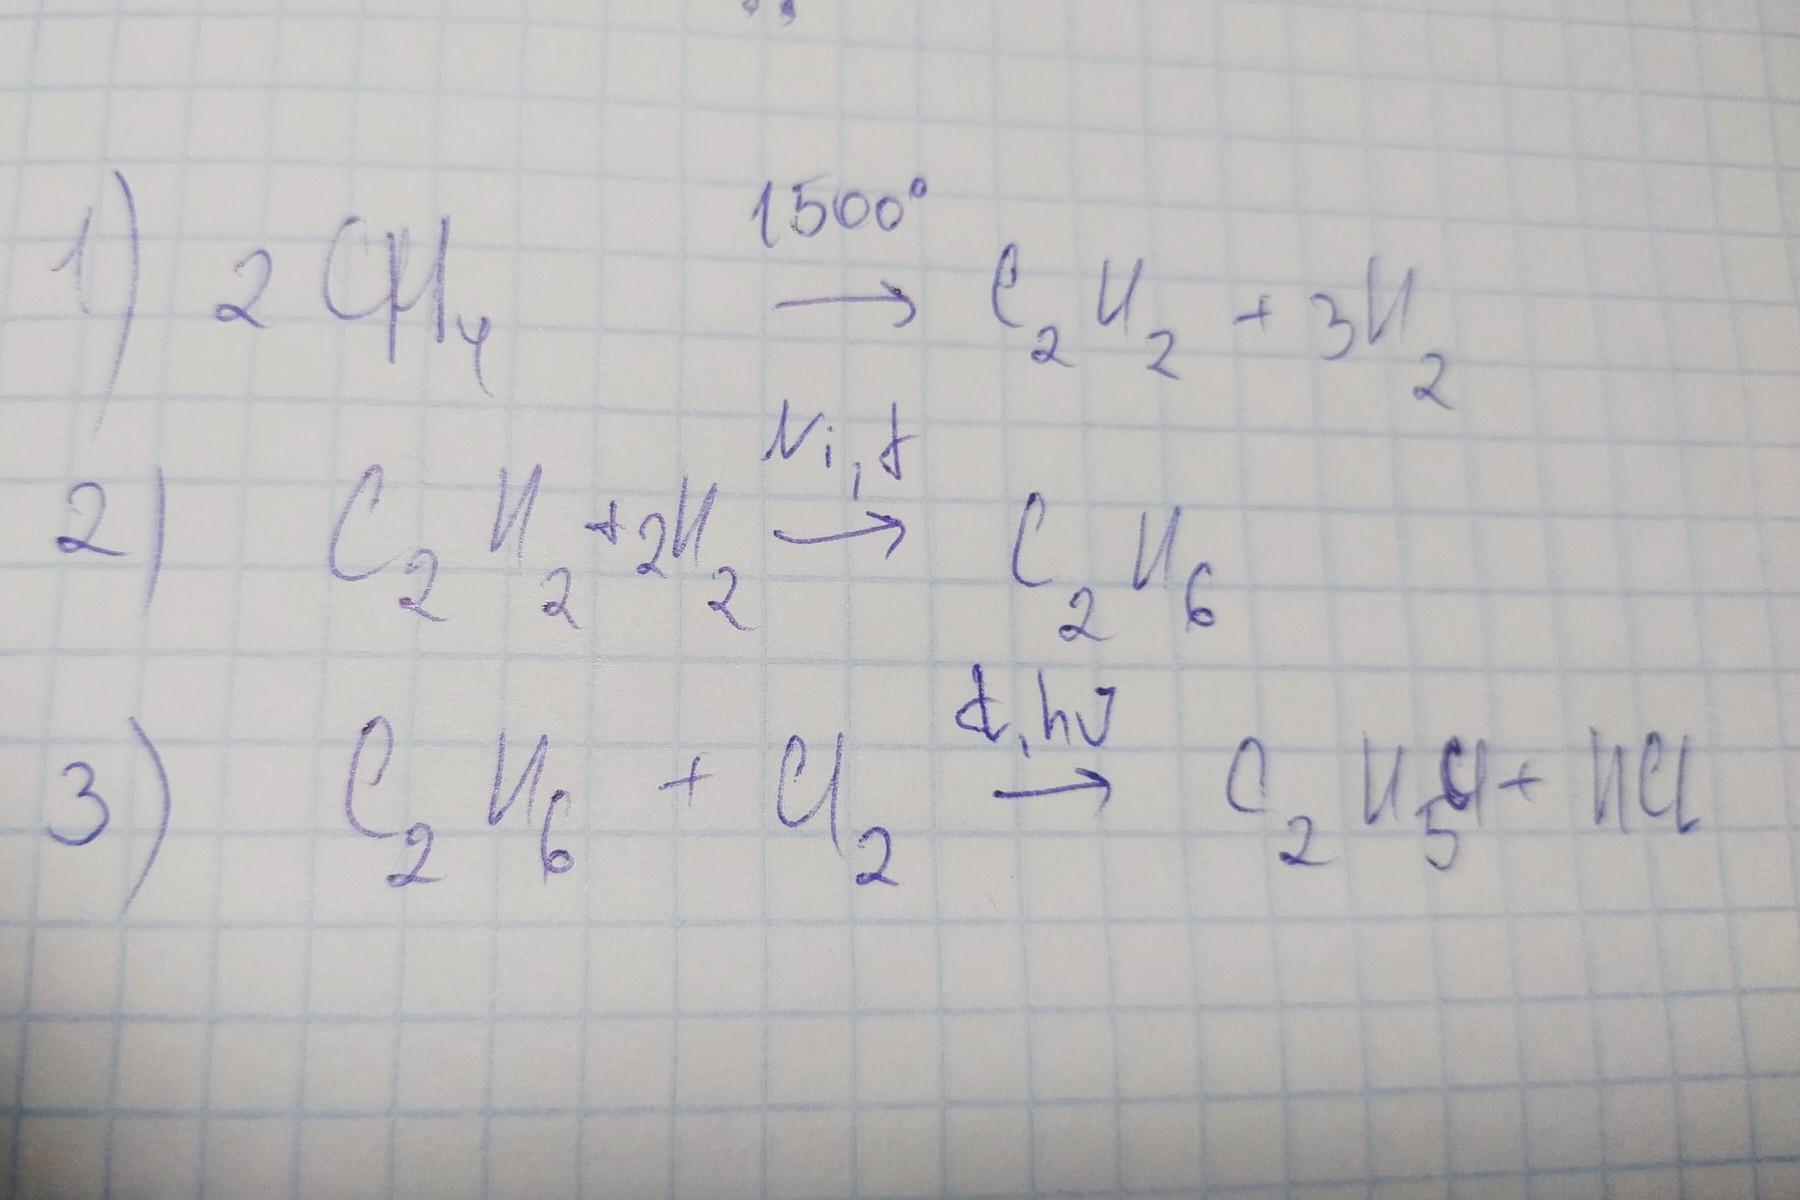 1) 2CH₄ 1500° → C₂H₂ + 3H₂
2) C₂H₂ + 2H₂ Ni, t → C₂H₆
3) C₂H₆ + Cl₂ t, hν → C₂H₅Cl + HCl